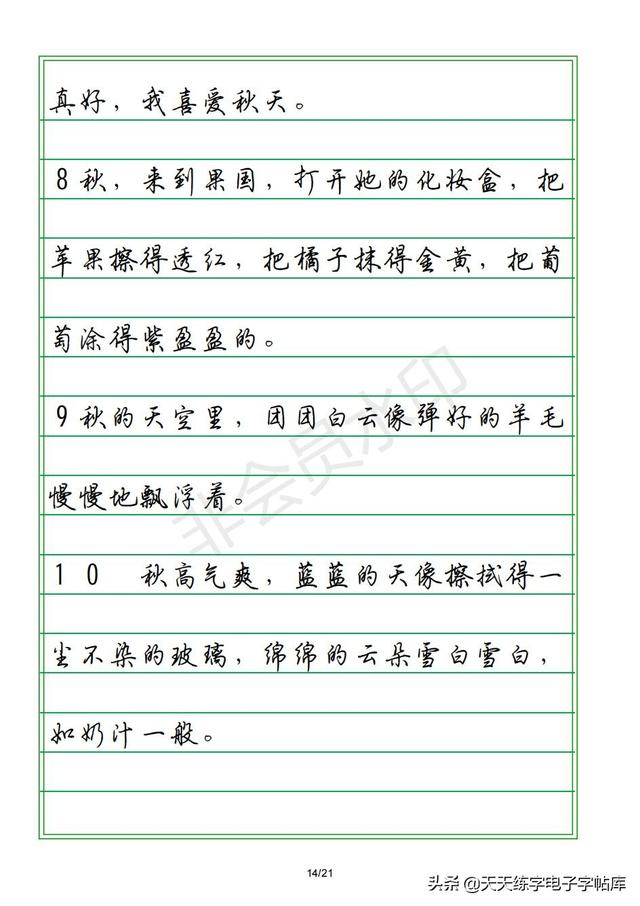 真好，我喜爱秋天。
8秋，来到果国，打开她的化妆盒，把
苹果擦得透红，把橘子抹得金黄，把葡
萄涂得紫盈盈的。
9秋的天空里，团团白云像弹好的羊毛
慢慢地飘浮着。
10 秋高气爽，蓝蓝的天像擦拭得一
尘不染的玻璃，绵绵的云朵雪白雪白，
如奶汁一般。
非会员水印
14/21
头条 @天天练字电子字帖库